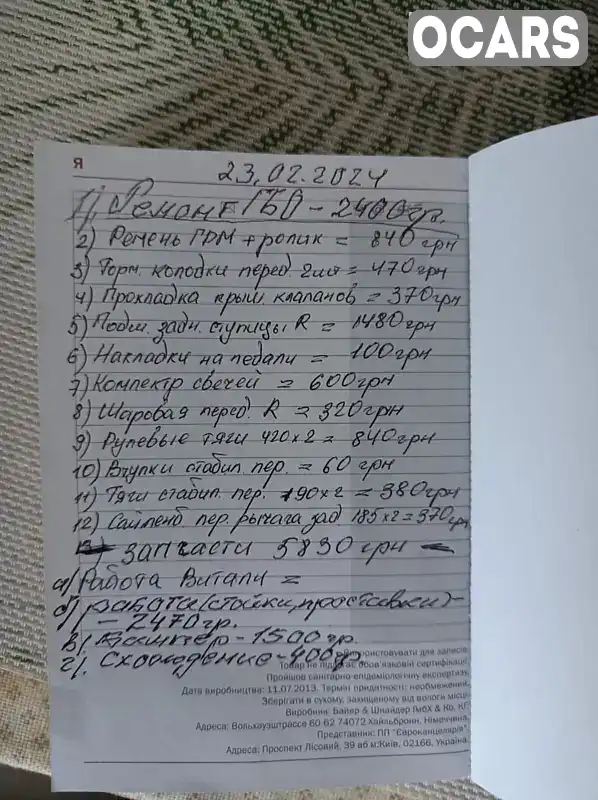 OCARS
Я
23.02.2024
1). Ремонт ГБО - 2400гр.
2) Ремень ГРМ + ролик = 840 грн
3) Торм. колодки перед. = 470грн
4) Прокладка крыш клапанов = 370грн
5) Подш. задн. ступицы R = 1480грн
6) Накладки на педали = 100грн
7) Компектр свечей = 600грн
8) Шаровая перед. R = 320грн
9) Рулевые тяги 420х2 = 840грн
10) Втулки стабил. пер. = 60 грн
11) Тяги стабил. пер. 190х2 = 380грн
12) Сайленб пер. рычага зад 185х2=370грн
запчасти 5830 грн
а) Работа Витали =
б) работа (стойки, проставки) -
- 2470гр.
в). Бампер - 1500гр.
г). Схождение - 400гр
використовувати для записів.
Товар не підлягає обов'язковій сертифікації.
Пройшов санітарно-епідеміологічну експертизу.
Дата виробництва: 11.07.2013. Термін придатності: необмежений.
Зберігати в сухому, захищеному від вологи місці.
Виробник: Байєр & Шнайдер ГмбХ & Ко, КГ
Адреса: Вольхаузштрассе 60 62 74072 Хайльбронн, Німеччина.
Представник: ПП "Євроканцелярія".
Адреса: Проспект Лісовий, 39 аб м.Київ, 02166, Україна.